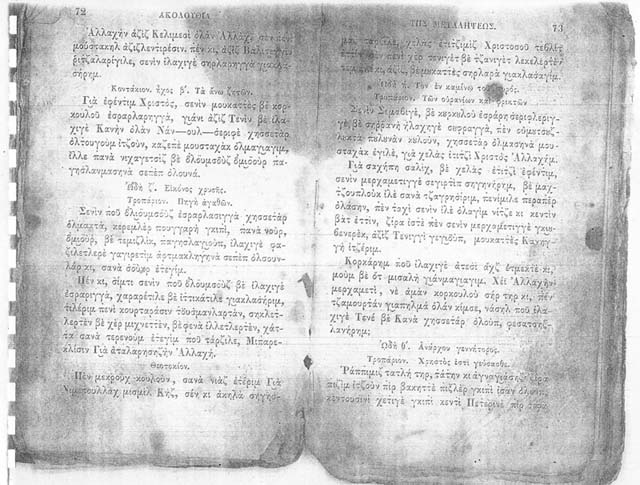 72
ΑΚΟΛΟΥΘΙΑ
Ἀλλαχὴν ἀζὶζ Κελιμεσὶ ὀλὰν Ἀλλὰχ
μοὐστακὴλ ἀζιζλεντιρέσιν. πὲν κι, ἀζὶζ
σενὶν ἰλαχιγὲ σηρλαρηγγὰ
σήρημ.
Κοντάκιον. ἦχος β΄. Τὰ ἄνω ζητῶν.
Γιὰ ἐφέντιμ Χριστὸς, σενὶν μουκαττὲς βὲ κορ-
κουλοῦ ἐσραρλαρηγγὰ, γιάνι ἀζὶζ Τενὶν βὲ ἰλα-
χιγὲ Κανὴν ὀλὰν Νάν—ουλ—σερὶφὲ χησσετὰρ
ὀλτουγοὺμ ἰτζοὺν, καζεπὲ μουσταχὰκ ὀλμαγιαγιμ,
ἴλλε πανὰ νιχαγετσὶζ βὲ ὀλουμσοὺζ ὀμιοὺρ πα-
γησλανμασηνὰ σεπὲπ ὀλσουνά.
ᾨδὴ ζ΄. Εἰκόνος χρυσῆς.
Τροπάριον. Πηγὴ ἀγαθῶν.
Σενὶν ποὺ ὀλιουμσοὺζ ἐσραρλασιγγὰ χησσετὰρ
ὀλμακτὰ, κερεμλὲρ πουγγαρὴ γκιπὶ, πανὰ νοὺρ,
ὀμιοὺρ, βὲ τεμιζλὶκ, παγησλαγισπὶ, ἰλαχιγὲ φα-
ζιλετλερὲ γαγιρετὶμ ἀρτμακλὴγηνὰ σεπὲπ ὀλσουν-
λὰρ κι, σανὰ σοὺκρ ἐτεγίμ.
Πέν κι, σίμτι σενὶν ποὺ ὀλουμσοὺζ βὲ ἰλαχιγὲ
ἐσραριγγὰ, χαραρέτιλε βὲ ἰττικάτιλε γιακλασήριμ,
τιλέριμ πενὶ κουρταρὰσιν τουσμανλαρτὰν, σηκλετ-
λερτὲν βὲ χὲρ μιχνεττὲν, βὲ φενὰ ἰλλετλερτὲν, χάτ-
τα σανὰ τερενοὺμ ἐτεγὶμ ποὺ τάρζιλε, Μπαρεκ-
κλίσιν Γιὰ ἀταλαρησηζὴν Ἀλλαχή.
Θεοτοκίον.
Πὲν μεκροὺχ κουλοὺν, σανὰ νιὰζ ἐτέριμ Γιὰ
μισμὶλ Κὴζ, σέν κι ἀκηλὰ σηγησ-
ΤΗΣ ΜΕΤΑΛΗΨΕΩΣ.
73
χελὰς ἐτιτζιμὶζ Χριστοσοὺ τεβλὲτ
χὲρ τενιγὲτ βὲ τζανιγὲτ λεκελερτὲν
ἀζὶζ, βὲ μουκαττὲς σηρλαρὰ γιακλασαγίμ.
ᾨδὴ η΄. Τῶν ἐν καμίνῳ τοῦ πυρός.
Τροπάριον. Τῶν οὐρανίων καὶ φρικτῶν
Σενὶν Σεμαβιγὲ, βὲ κορκουλοὺ ἐσράρη σεριφλεριγ-
γὲ, βὲ σηβρανὴ ἠλαχηγὲ σωφραγγὰ, πὲν οὐμουτσουζ-
λουκτὰ πουλουνὰν κουλοὺν, χησσετὰρ ὀλμασηνὰ μου-
σταχὰκ ἐγιλὲ, γιὰ χελὰς ἐτιτζὶ Χριστὸς Ἀλλαχήμ.
Γιὰ σαχήπη σαλὶχ, βὲ χελὰς ἐτιτζὶ ἐφέντιμ,
σενὶν μερχαμετιγγὲ σεγιρτὶπ σηγηνήρημ, βὲ μαχ-
τζουπλοὺκ ἰλὲ σανὰ τζαγρησήριμ, πενίμιλε περαπὲρ
ὀλάσην, πὲν ταχὶ σενὶν ἰλὲ ὀλαγὶμ νίτζε κι κεντὶν
βὰτ ἐττὶν, ζίρα ἰστὲ πὲν σενὶν μερχαμετιγγὲ γκιου-
βενερὲκ, ἀζὶζ Τενιγγὶ γεγίοὺπ, μουκαττὲς Κανηγ-
γὴ ἰτζέριμ.
Κορκάρημ ποὺ ἰλαχιγὲ ἀτεσὶ ἀχζ ἐτμεκτὲ κι,
μοὺμ βὲ ὀτ μισαλὴ γιάνμαγιαγιμ. Χέϊ Ἀλλαχὴν
μερχαμετὶ, νὲ ἀμὰν κορκουλοὺ σὴρ τηρ κι, πὲν
τζαμουρτὰν γιαπηλμὰ ὀλὰν κίμσε, νάσηλ ποὺ ἰλα-
χιγὲ Τενὲ βὲ Κανὰ χησσετὰρ ὀλοὺπ, φεσατσὴζ-
λανήρημ;
ᾨδὴ θ΄. Ἄναρχον γεννήτορος.
Τροπάριον. Χριστὸς ἐστὶ γεύσασθε.
Ῥαππιμὶζ τατλὴ τηρ, τάτην κι ζίρα
πιζὶμ ἰτζοὺν πὶρ βακηττὲ πιζλὲρ γκιπὶ ἰσὰν
κεντουσινὶ χετιγὲ γκιπὶ κεντὶ Πετερινὲ πὶρ